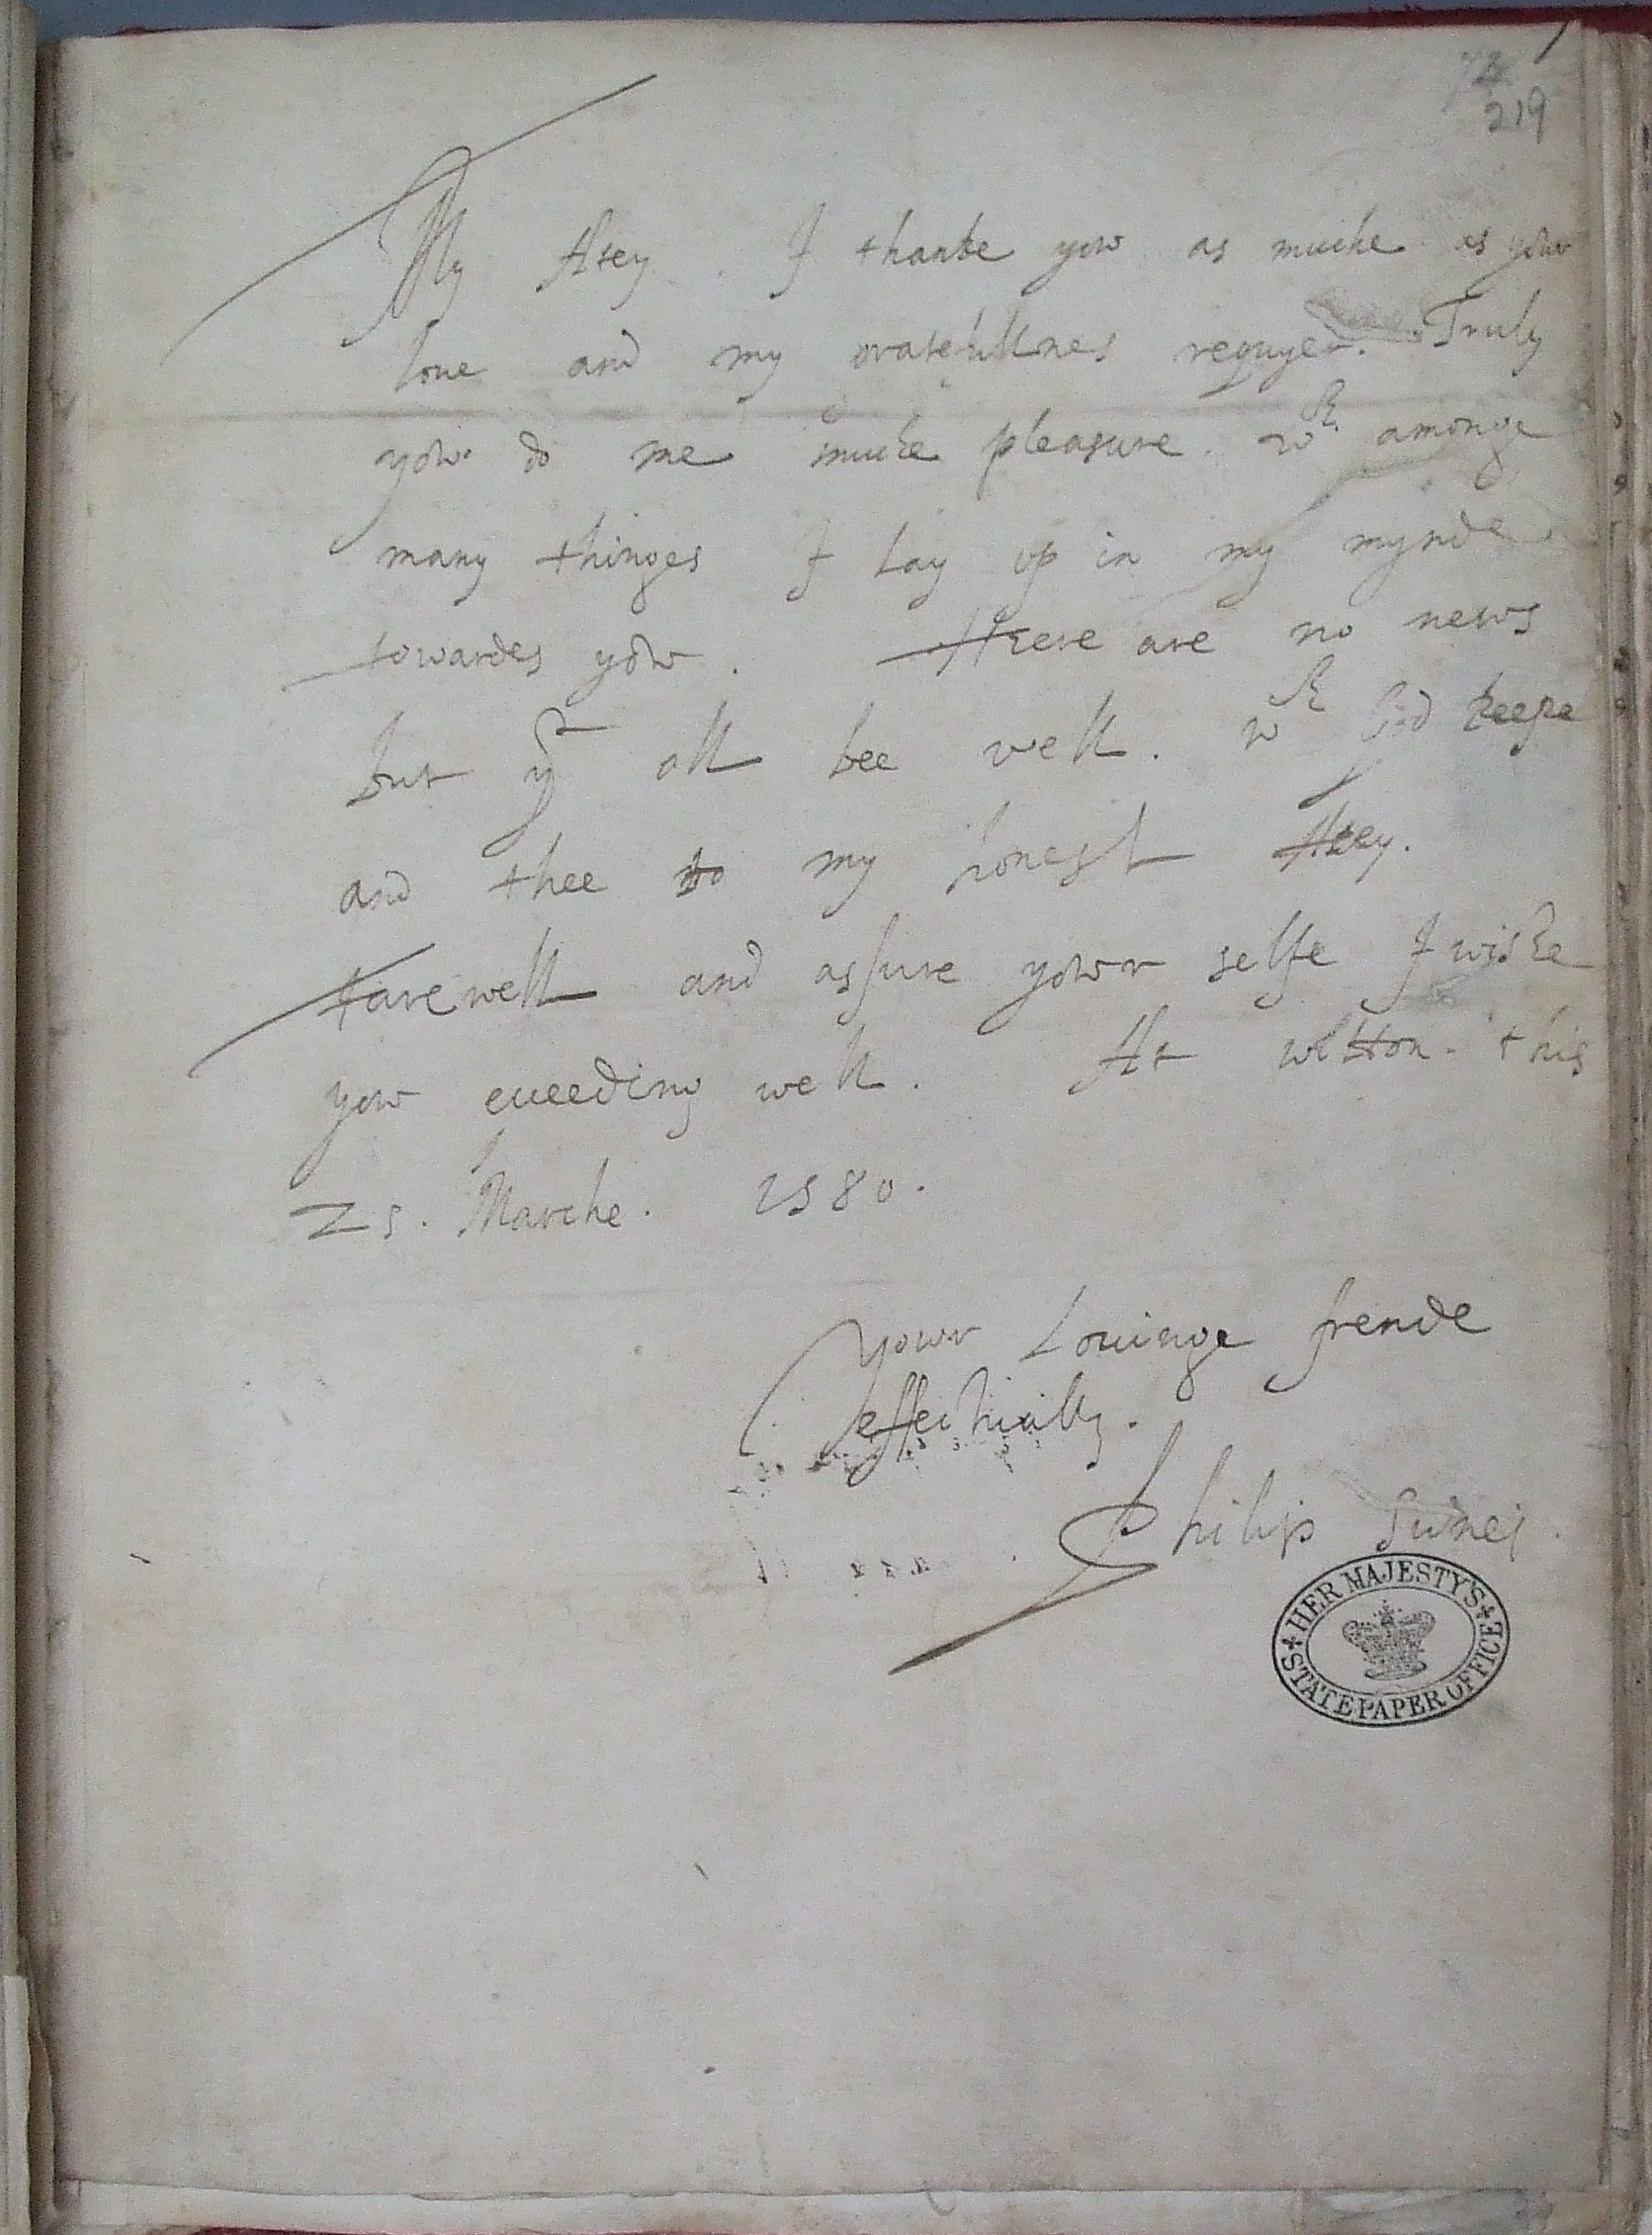 219
My Atey. I thanke yow as muche as yowr
loue and my gratefullnes requyer. Truly
yow do me muche pleasure. wch amonge
many thinges I lay up in my mynde
towardes yow. Heere are no news
but yt all bee well. wch god keepe
and thee to my honest Atey.
Farewell and assure yowr selfe I wishe
yow exceeding well. At wilton. this
25. Marche. 1580.
yowr Louinge frende
effectuially.
Philip Sidnei.
HER MAJESTY'S STATE PAPER OFFICE